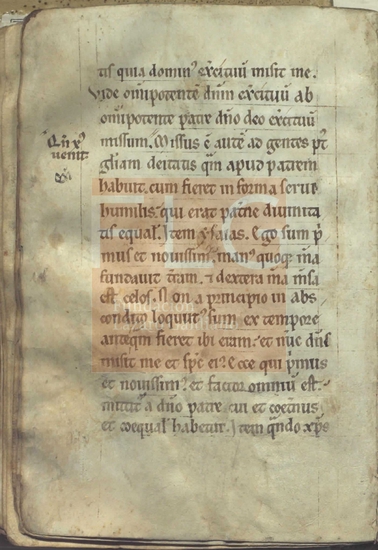 tis quia domin⁹ exercituū misit me.
Vide om̅ipotentē dn̄m exercituū ab
om̅ipotente patre dn̄o deo exercituū
missum. Missus ē autē ad gentes p̄t
gl̄iam deitatis qm̄ apud patrem
habuit. cum fieret in forma serui
humilis. qui erat patrie diuinita
tis equal̄. Item ysaias. Ego sum p̄
mus et nouissim⁹. man⁹ quoq; m̄a
fundauit t̄ram. ⁊ dextera m̄a m̄sa
est celos. Non a principio in abs
condito locut⁹ sum ex tempore
anteqm̄ fieret ibi eram. et nūc dn̄s
misit me et sp̄c ei⁹. Ecce qui p̄mus
et nouissim⁹ et factor omniū est.
mittit̄ a dn̄o patre cui et coet̄nus
et coequal̄ habetur. Item qn̄do xp̄s
Qn̄ xp̄s
uenit